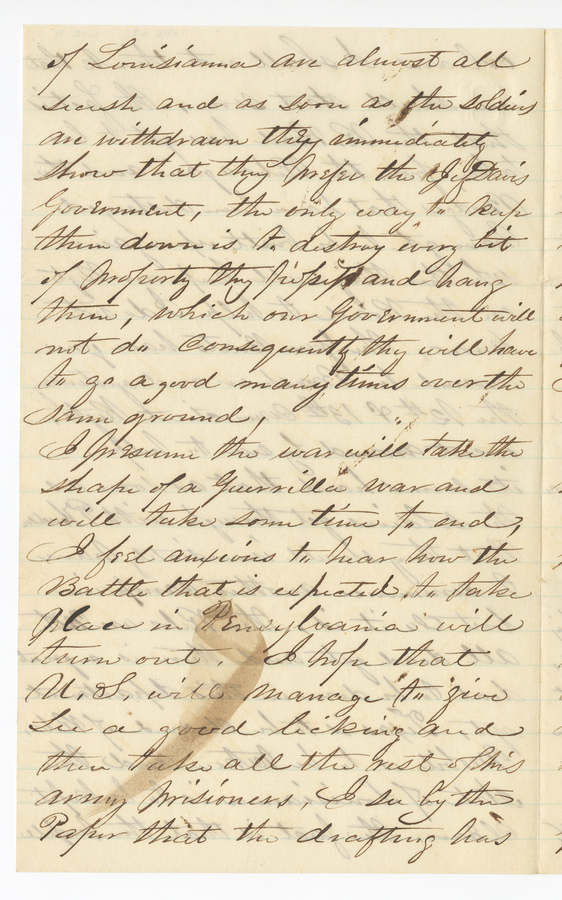 of Louisianna are almost all
secesh and as soon as the soldiers
are withdrawn they immediately
show that they prefer the Jeff Davis
Government, the only way to keep
them down is to destroy every bit
of property they possess and hang
them, which our Government will
not do Consequently they will have
to go a good many times over the
same ground,
I presume the war will take the
shape of a Guerrilla war and
will take some time to end,
I feel anxious to hear how the
Battle that is expected to take
Place in Pennsylvania will
turn out. I hope that
U.S. will manage to give
Lee a good licking and
then take all the rest of his
army prisioners, I see by the
Paper that the drafting has